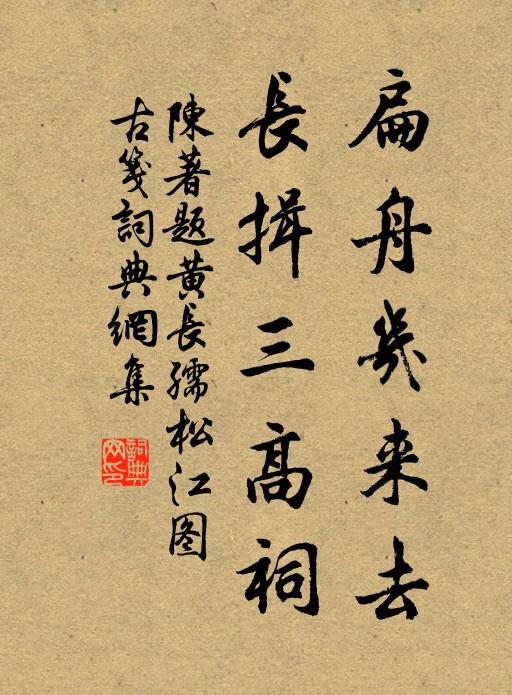 扁舟幾来去
長揖三高祠
陳著題黄長孺松江图
古箋詞典網集
詞典网印